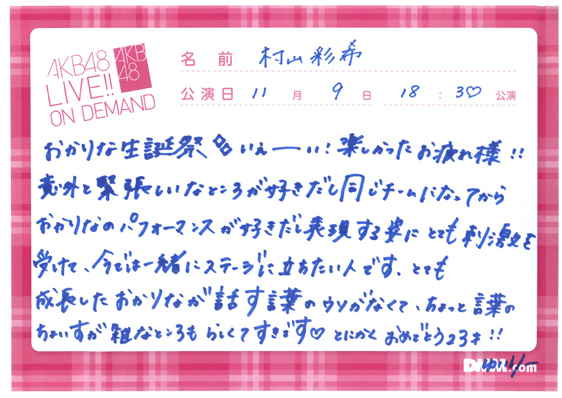 AKB48
LIVE!!
ON DEMAND
AKB
48
名前 村山彩希
公演日 11月9日 18:30公演
おかりな生誕祭 いぇーい!楽しかったお疲れ様!!
意外と緊張しいなところが好きだし同じチームになってから
おかりなのパフォーマンスが好きだし表現する姿にとても刺激を
受けて、今では一緒にステージに立ちたい人です、とても
成長したおかりなが話す言葉のウソがなくて、ちょっと言葉の
ちょいすが雑なところもらしくてすきです♡とにかくおめでとう23才!!
.com